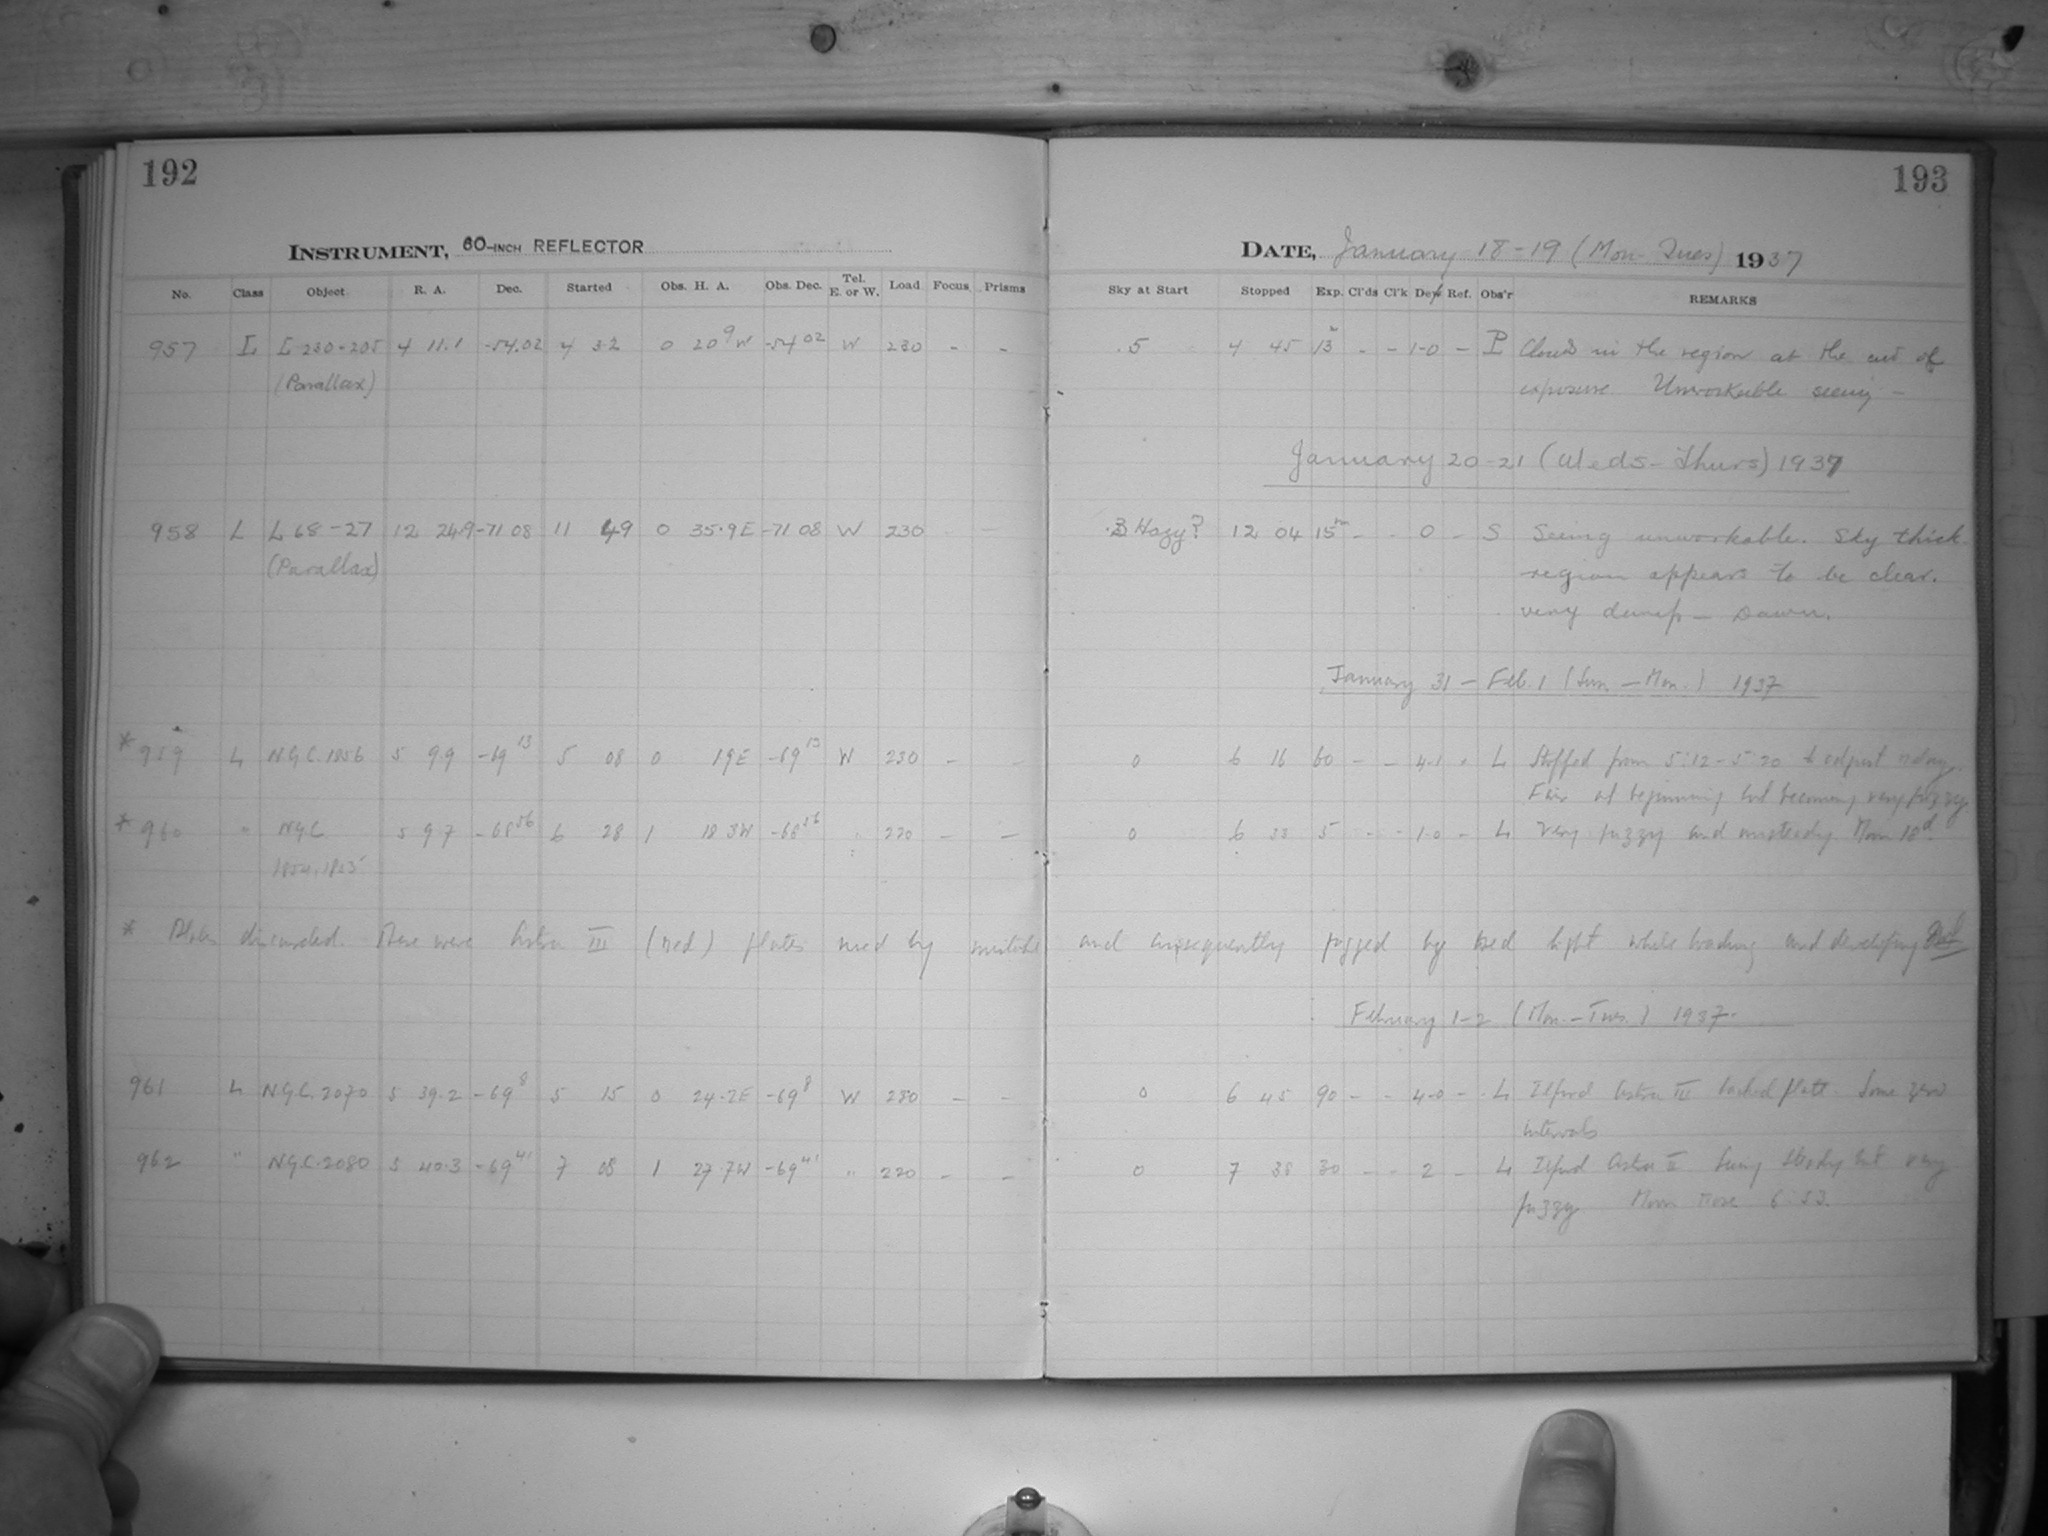 192
193
INSTRUMENT, 60-INCH REFLECTOR
DATE, January 18-19 (Mon-Tues) 1937
No. Class Object R. A. Dec. Started Obs. H. A. Obs. Dec. Tel. E. or W. Load Focus Prisms Sky at Start Stopped Exp. Cl'ds Cl'k Dew Ref. Obs'r REMARKS
957 L L 230-205 4 11.1 -54.02 4 32 0 20 9 W -54 02 W 230 - - .5 4 45 13 m - - 1-0 - P Clouds in the region at the end of
(Parallax) exposure. Unworkable seeing -
January 20-21 (Weds-Thurs) 1937
958 L L 68-27 12 24.9 -71 08 11 49 0 35.9E -71 08 W 230 - Hazy? 12 04 15 m - - 0 - S Seeing unworkable. Sky thick-
(Parallax) region appears to be clear.
very damp - Dawn.
January 31 - Feb. 1 (Sun. - Mon.) 1937
* 959 L NGC. 1856 5 9.9 -69 13 5 08 0 19E -69 13 W 230 - - 0 6 16 60 - - 4-1 - L Stopped from 5:12-5:20 to adjust relay.
Fair at beginning but becoming very fuzzy
* 960 " NGC 5 9.7 -68 56 6 28 1 18.3W -68 56 " 220 - - 0 6 33 5 - - 1-0 - L Very fuzzy and unsteady. Moon 18d.
1854, 1855
* Plates discarded. These were Astra III (Red) plates used by mistake and consequently fogged by red light while loading and developing
February 1-2 (Mon.-Tues.) 1937.
961 L NGC. 2070 5 39.2 -69 8 5 15 0 24.2E -69 8 W 230 - - 0 6 45 90 - - 4-0 - L Ilford Astra III backed plate. Some zero
intervals
962 " NGC. 2080 5 40.3 -69 41 7 08 1 27.7W -69 41 " 220 - - 0 7 38 30 - - 2 - L Ilford Astra II Seeing steady but very
fuzzy Moon rose 6:53.